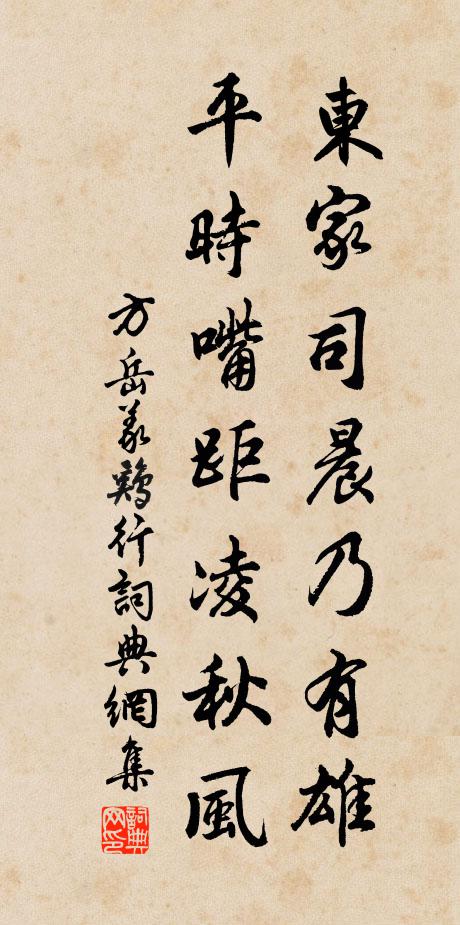 東家司晨乃有雄
平時嘴距凌秋風
方岳義鷄行詞典網集
詞典网印